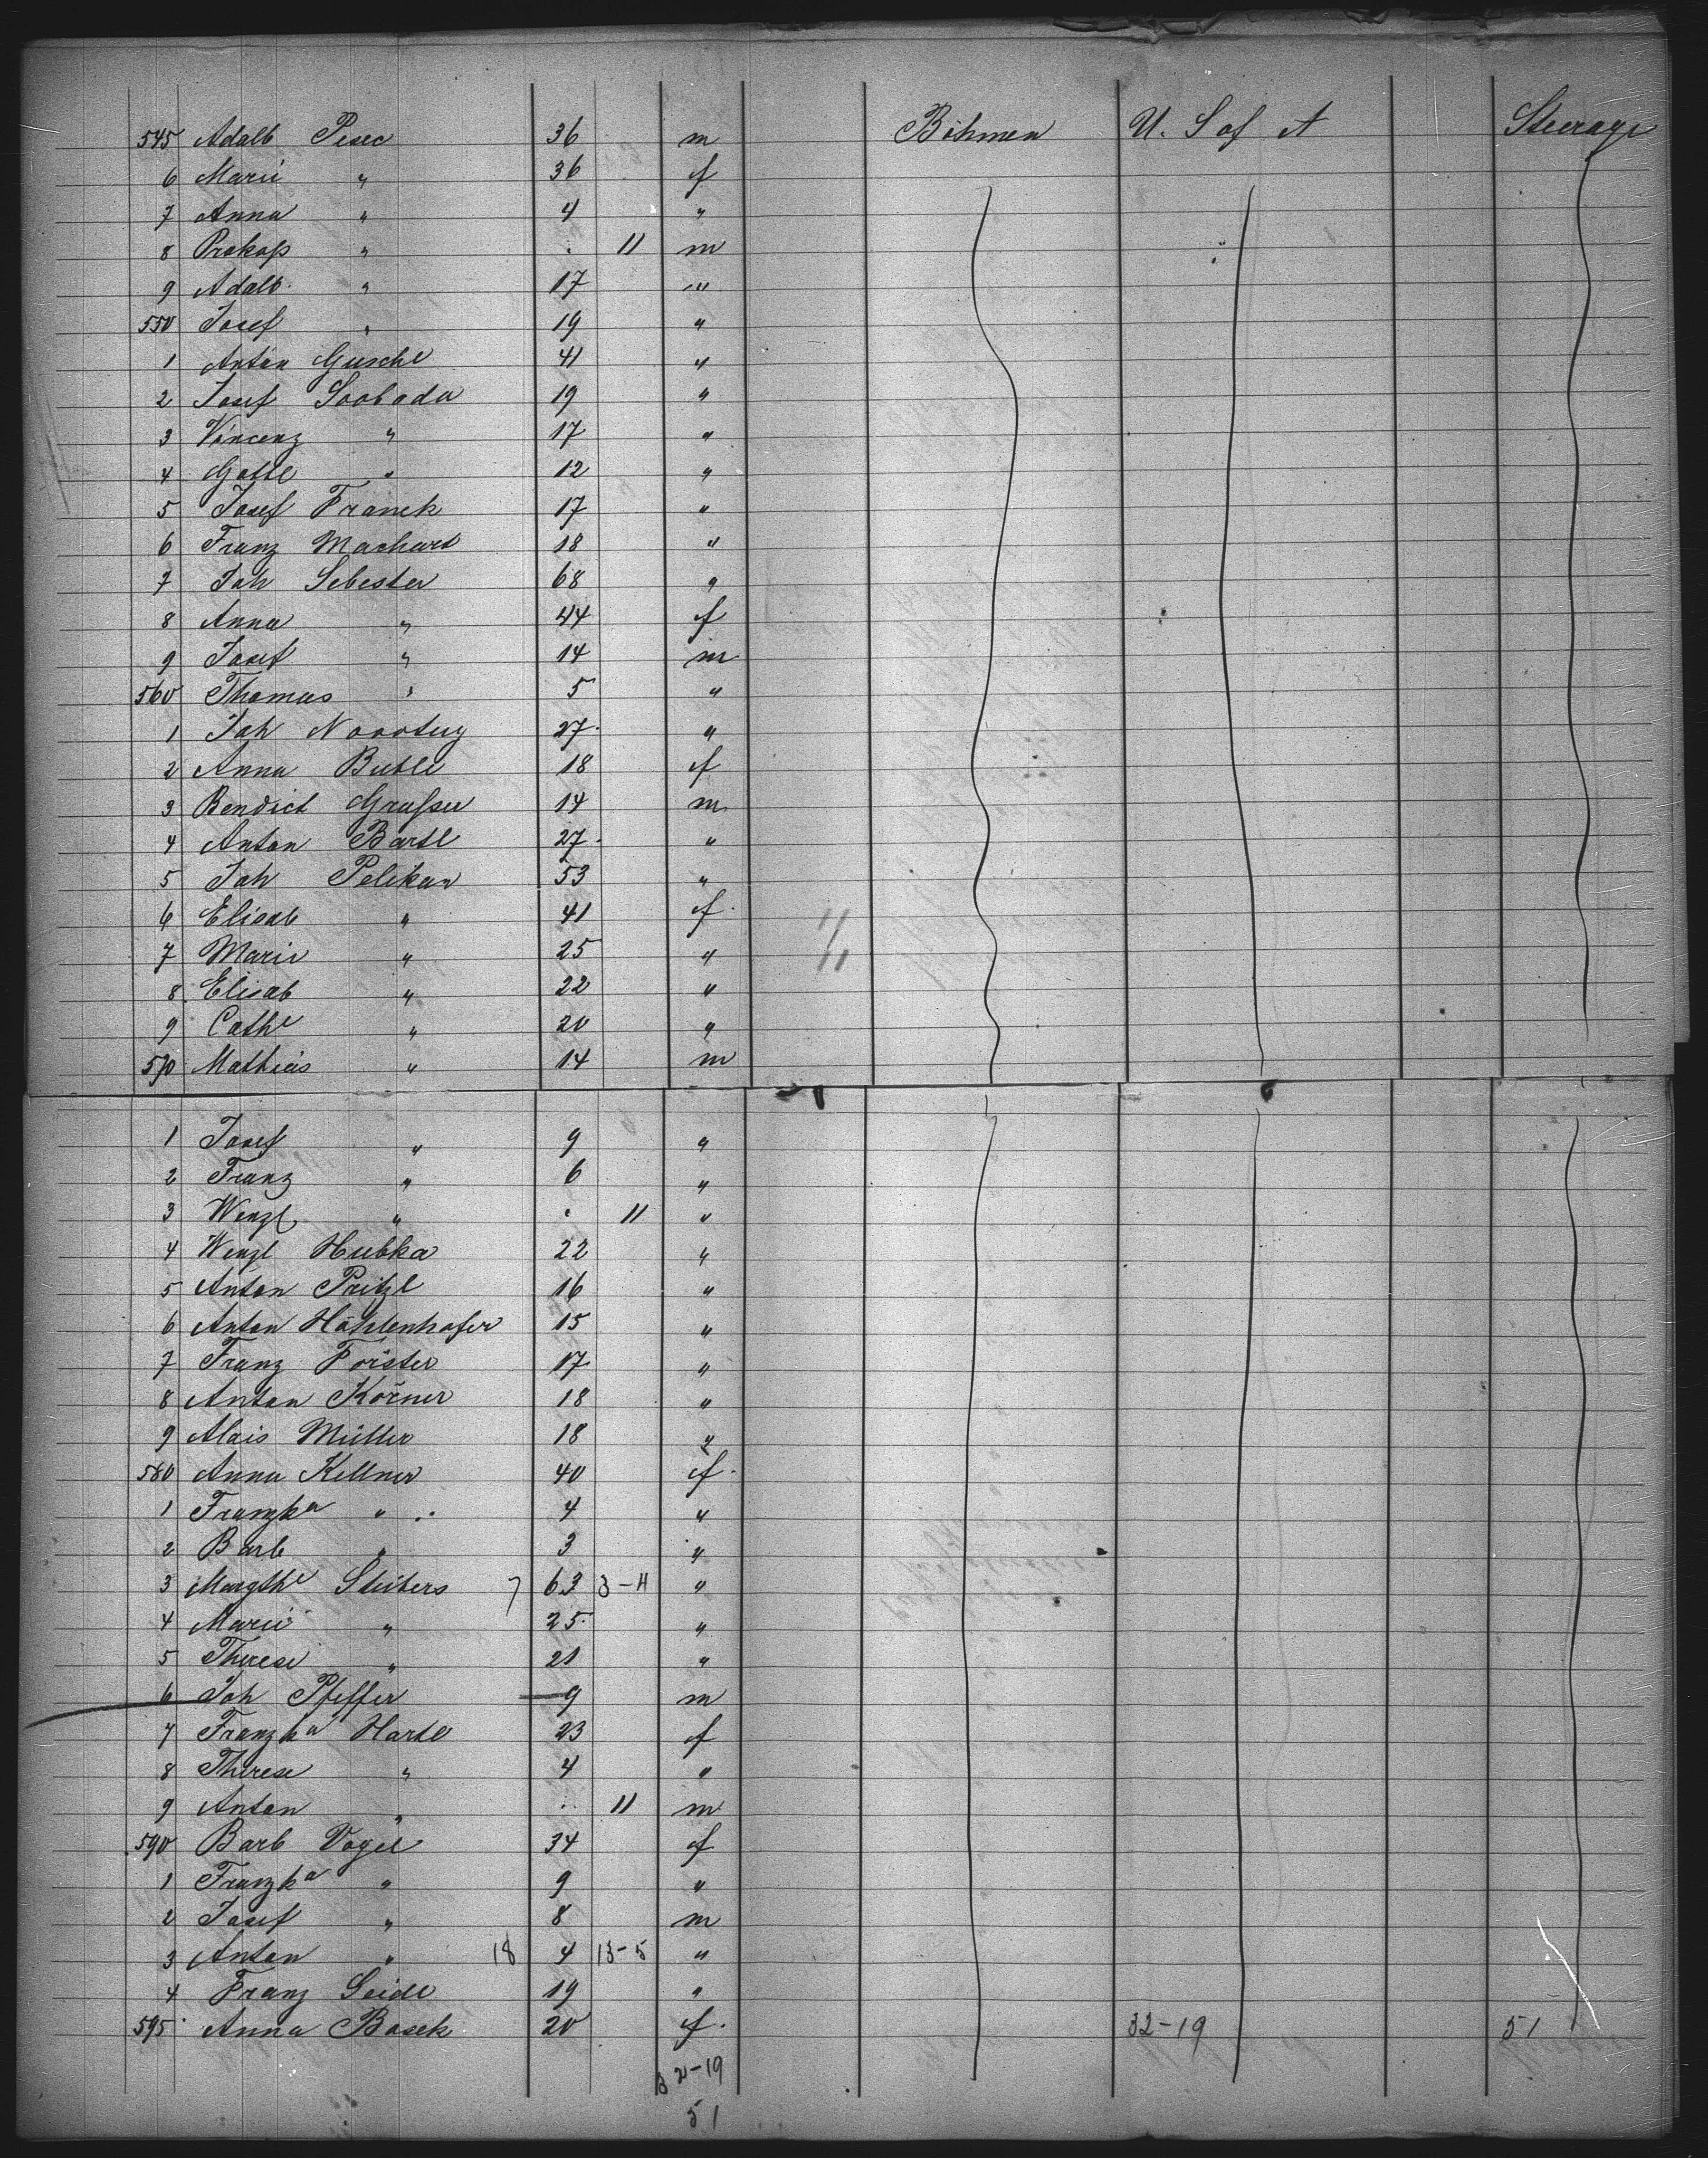 545 Adalb Pesec 36 m Böhmen U. S of A Steerage
6 Marie " 36 f
7 Anna " 4 "
8 Prokop " . 11 m
9 Adalb. " 17 "
550 Josef " 19 "
1 Anton Guschl 41 "
2 Josef Svoboda 19 "
3 Vincenz " 17 "
4 Gottl " 12 "
5 Josef Franek 17 "
6 Franz Machart 18 "
7 Joh Sebester 68 "
8 Anna " 44 f
9 Josef " 14 m
560 Thomas " 5 "
1 Joh Novotny 27 "
2 Anna Bubll 18 f
3 Bendict Grasser 14 m
4 Anton Bartl 27 "
5 Joh Pelikan 53 "
6 Elisab " 41 f
7 Marie " 25 "
8 Elisab " 22 "
9 Cathe " 20 "
570 Mathias " 14 m
1 Josef " 9 "
2 Franz " 6 "
3 Wenzl " . 11 "
4 Wenzl Hubka 22 "
5 Anton Pritzl 16 "
6 Anton Höhlenhofer 15 "
7 Franz Förster 17 "
8 Anton Körner 18 "
9 Alois Müller 18 "
580 Anna Kellner 40 f
1 Franzka " 4 "
2 Barb " 3 "
3 Margthe Stubers 7 63 3-4 "
4 Marie " 25 "
5 Therese " 21 "
6 Joh Pfeffer 9 m
7 Franzka Hartl 23 f
8 Therese " 4 "
9 Anton " . 11 m
590 Barb Vogel 34 f
1 Franzka " 9 "
2 Josef " 8 m
3 Anton " 18 4 13-5 "
4 Franz Seidl 19 "
595 Anna Bosek 20 f 32-19 51
32-19
51